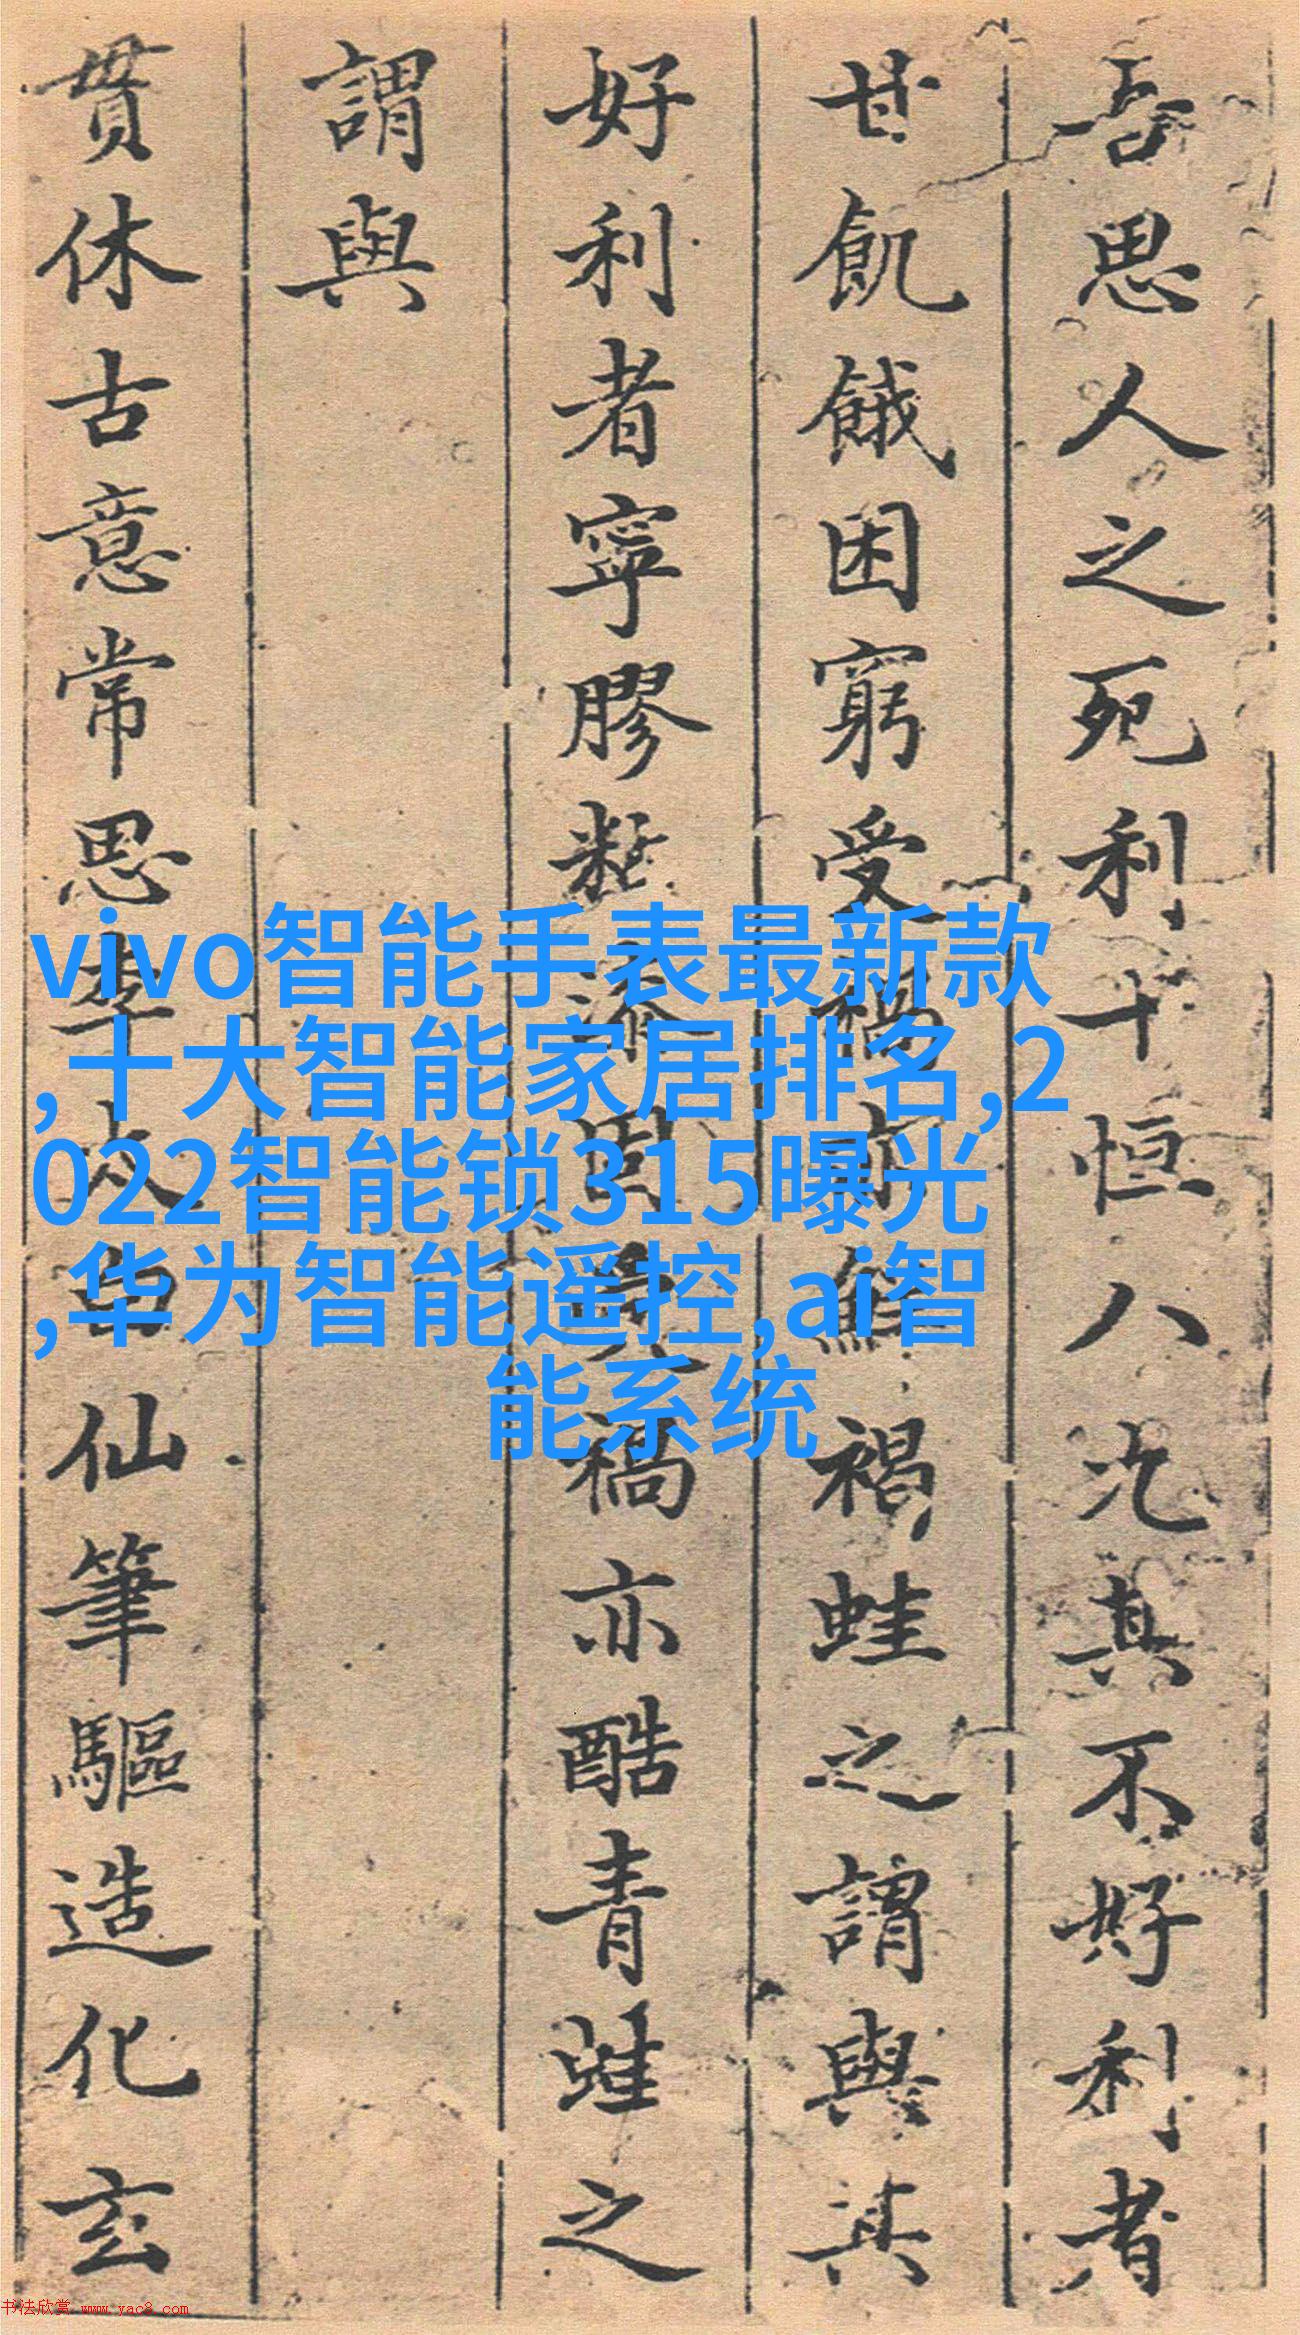 吾思人之死利十恒八九其不好利者
甘飢餓困窮受禍亦鮮禍蛙之謂與其
好利者寧膠黏漆固其禍亦酷青蛙之
謂與
貫休古意常思李太白仙筆驅造化玄
vivo智能手表最新款
,十大智能家居排名,2
022智能锁315曝光
,华为智能遥控,ai智
能系统
书法欣赏 www.yac8.com